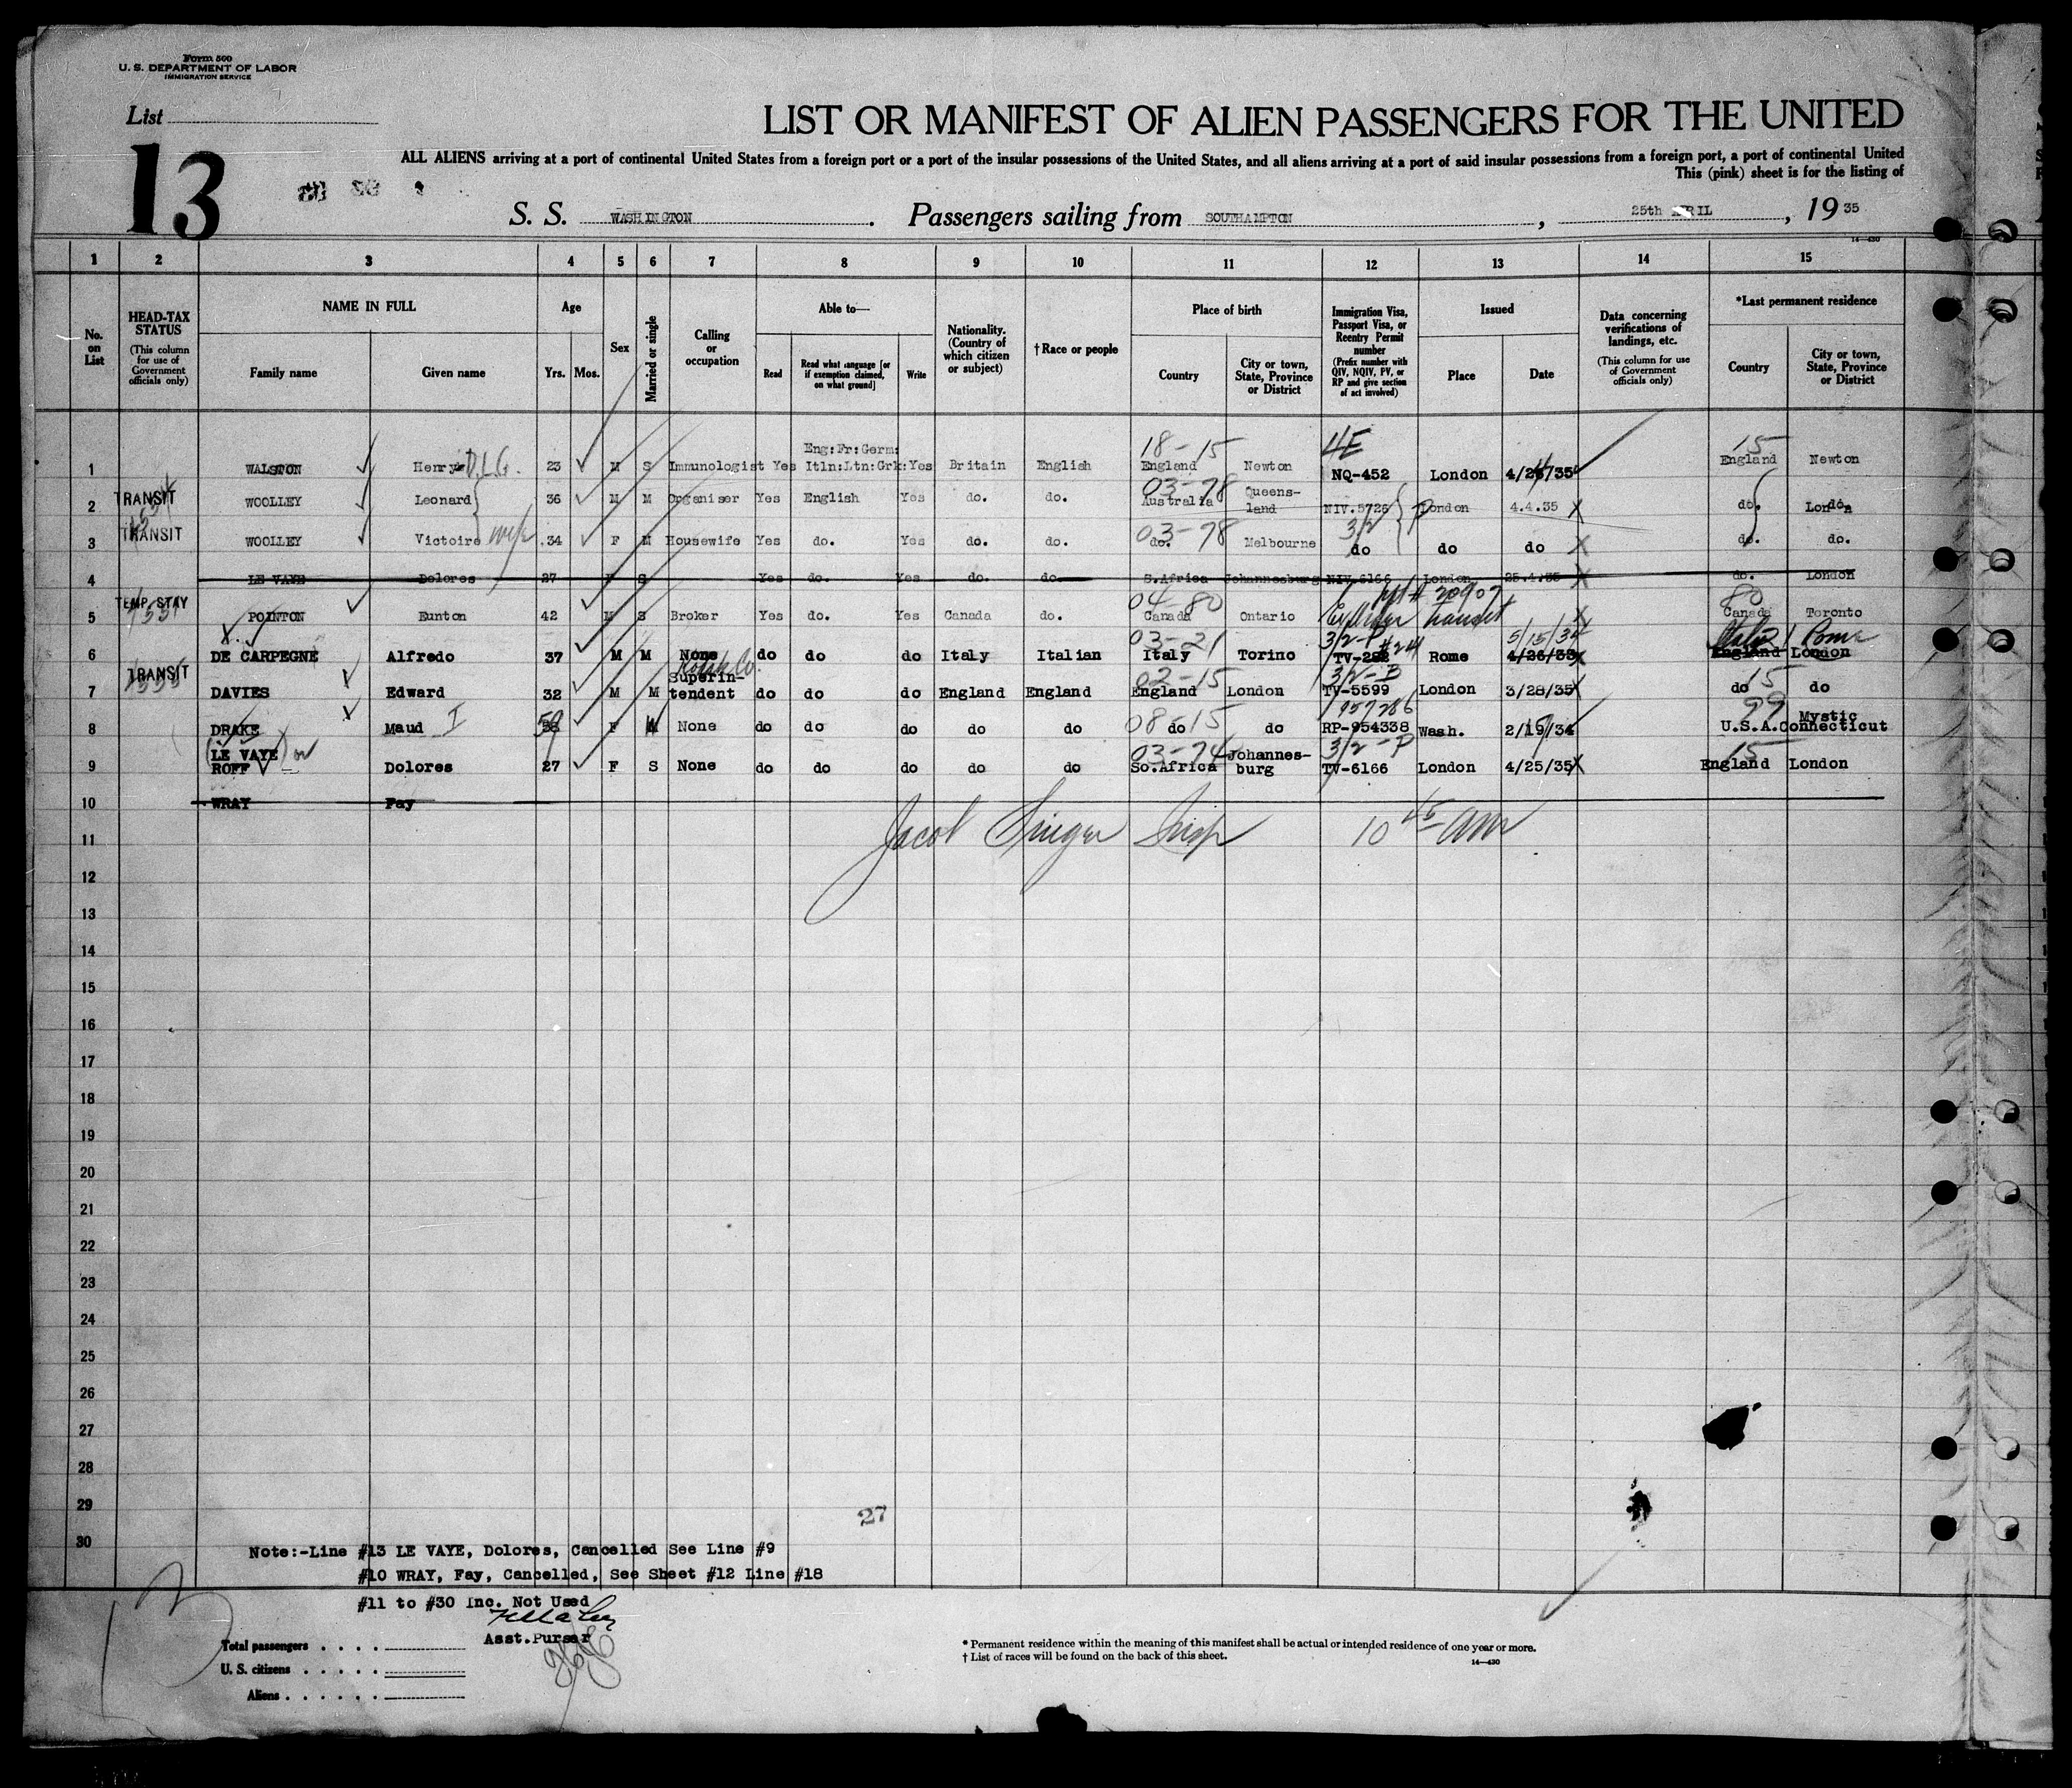 Form 500
U. S. DEPARTMENT OF LABOR
IMMIGRATION SERVICE
List
13
LIST OR MANIFEST OF ALIEN PASSENGERS FOR THE UNITED
ALL ALIENS arriving at a port of continental United States from a foreign port or a port of the insular possessions of the United States, and all aliens arriving at a port of said insular possessions from a foreign port, a port of continental United
This (pink) sheet is for the listing of
S. S. WASHINGTON. Passengers sailing from SOUTHAMPTON, 25th APRIL, 19 35
14—430
1 2 3 4 5 6 7 8 9 10 11 12 13 14 15
No. on List
HEAD-TAX STATUS (This column for use of Government officials only)
NAME IN FULL Family name Given name
Age Yrs. Mos.
Sex
Married or single
Calling or occupation
Able to— Read Read what language [or if exemption claimed, on what ground] Write
Nationality. (Country of which citizen or subject)
†Race or people
Place of birth Country City or town, State, Province or District
Immigration Visa, Passport Visa, or Reentry Permit number (Prefix number with QIV, NQIV, PV, or RP and give section of act involved)
Issued Place Date
Data concerning verifications of landings, etc. (This column for use of Government officials only)
*Last permanent residence Country City or town, State, Province or District
18-15 4E 15
Eng:Fr:Germ:
1 WALSTON Henry D.L.G. 23 M S Immunologist Yes Itln:Ltn:Grk: Yes Britain English England Newton NQ-452 London 4/26/35 England Newton
03-78
2 TRANSIT WOOLLEY Leonard 36 M M Organiser Yes English Yes do. do. Australia Queens-land NIV.5726 London 4.4.35 do. London
03-78 3/2
3 TRANSIT WOOLLEY Victoire wife 34 F M Housewife Yes do. Yes do. do. do. Melbourne do do do do. do.
4 LE VAYE Dolores 27 F S Yes do. Yes do. do. S.Africa Johannesburg NIV.6166 London 25.4.35 do. London
TEMP. STAY 04-80 80
5 POINTON Eunton 42 M S Broker Yes do. Yes Canada do. Canada Ontario transit Canada Toronto
03-21 3/2-P #24 5/15/34 Italy Rome
6 DE CARPEGNE Alfredo 37 M M None do do do Italy Italian Italy Torino TV-288 Rome 4/26/35 England London
TRANSIT 02-15 3/2-P 15
7 DAVIES Edward 32 M M Superin-tendent do do do England England England London TV-5599 London 3/28/35 do do
08-15 957286 99
8 DRAKE Maud I 59 F M None do do do do do do do RP-954338 Wash. 2/19/34 U.S.A. Mystic Connecticut
03-74 3/2-P 15
9 (LE VAYE) or ROFF Dolores 27 F S None do do do do do So.Africa Johannes-burg TV-6166 London 4/25/35 England London
10 WRAY Fay
11 Jacob Singer Insp 10 45 am
12
13
14
15
16
17
18
19
20
21
22
23
24
25
26
27
28
29
27
30
Note:-Line #13 LE VAYE, Dolores, Cancelled See Line #9
#10 WRAY, Fay, Cancelled, See Sheet #12 Line #18
#11 to #30 Inc. Not Used
Asst.Purser
13
Total passengers
U. S. citizens
Aliens
* Permanent residence within the meaning of this manifest shall be actual or intended residence of one year or more.
† List of races will be found on the back of this sheet.
14—430